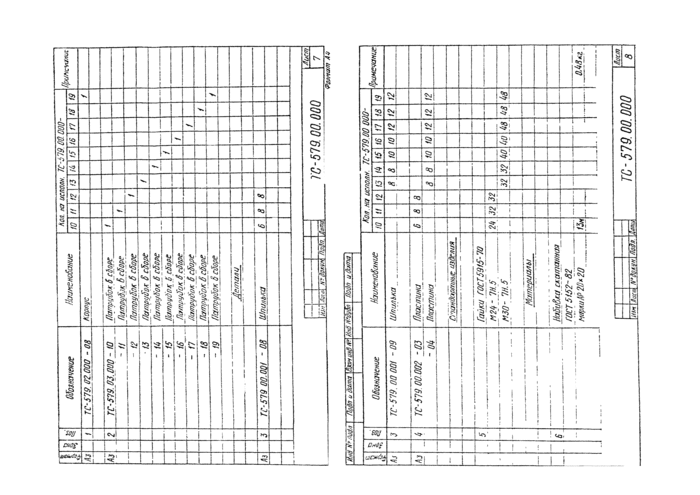 Формат Зона Поз. Обозначение Наименование Кол. на исполн. ТС-579.00.000- Примечание
10 11 12 13 14 15 16 17 18 19
А3 1 ТС-579.02.000 - 08 Корпус 1
А3 2 ТС-579.03.000 - 10 Патрубок в сборе 1
- 11 Патрубок в сборе 1
12 Патрубок в сборе 1
13 Патрубок в сборе 1
- 14 Патрубок в сборе 1
- 15 Патрубок в сборе 1
- 16 Патрубок в сборе 1
- 17 Патрубок в сборе 1
- 18 Патрубок в сборе 1
- 19 Патрубок в сборе 1
Детали
А3 3 ТС-579.00.001 - 08 Шпилька 6 8 8
Изм Лист № докум. Подп. Дата
ТС-579.00.000
Лист
7
Формат А4
Инв № подл Подп и дата Взам инв № Инв № дубл Подп и дата
Формат Зона Поз. Обозначение Наименование Кол. на исполн. ТС-579.00.000- Примечание
10 11 12 13 14 15 16 17 18 19
А3 3 ТС-579.00.001 - 09 Шпилька 8 8 10 10 12 12 12
А3 4 ТС-579.00.002 - 03 Пластина 6 8 8
- 04 Пластина 8 8 10 10 12 12 12
Стандартные изделия
5 Гайки ГОСТ 5915-70
М24 - 7Н.5 24 32 32
М30 - 7Н.5 32 32 40 40 48 48 48
Материалы
6 Набивка сальниковая
ГОСТ 5152-82
марки 13м 0.48кг
Изм Лист № докум Подп. Дата
ТС-579.00.000
Лист
8